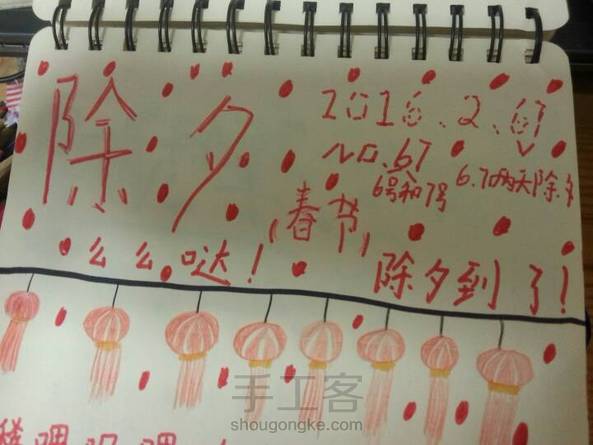 除夕
2016.2.67
NO.67
6号和7号
6.7两天除夕
"春节"
么么哒！
除夕到了！
手工客
shougongke.com